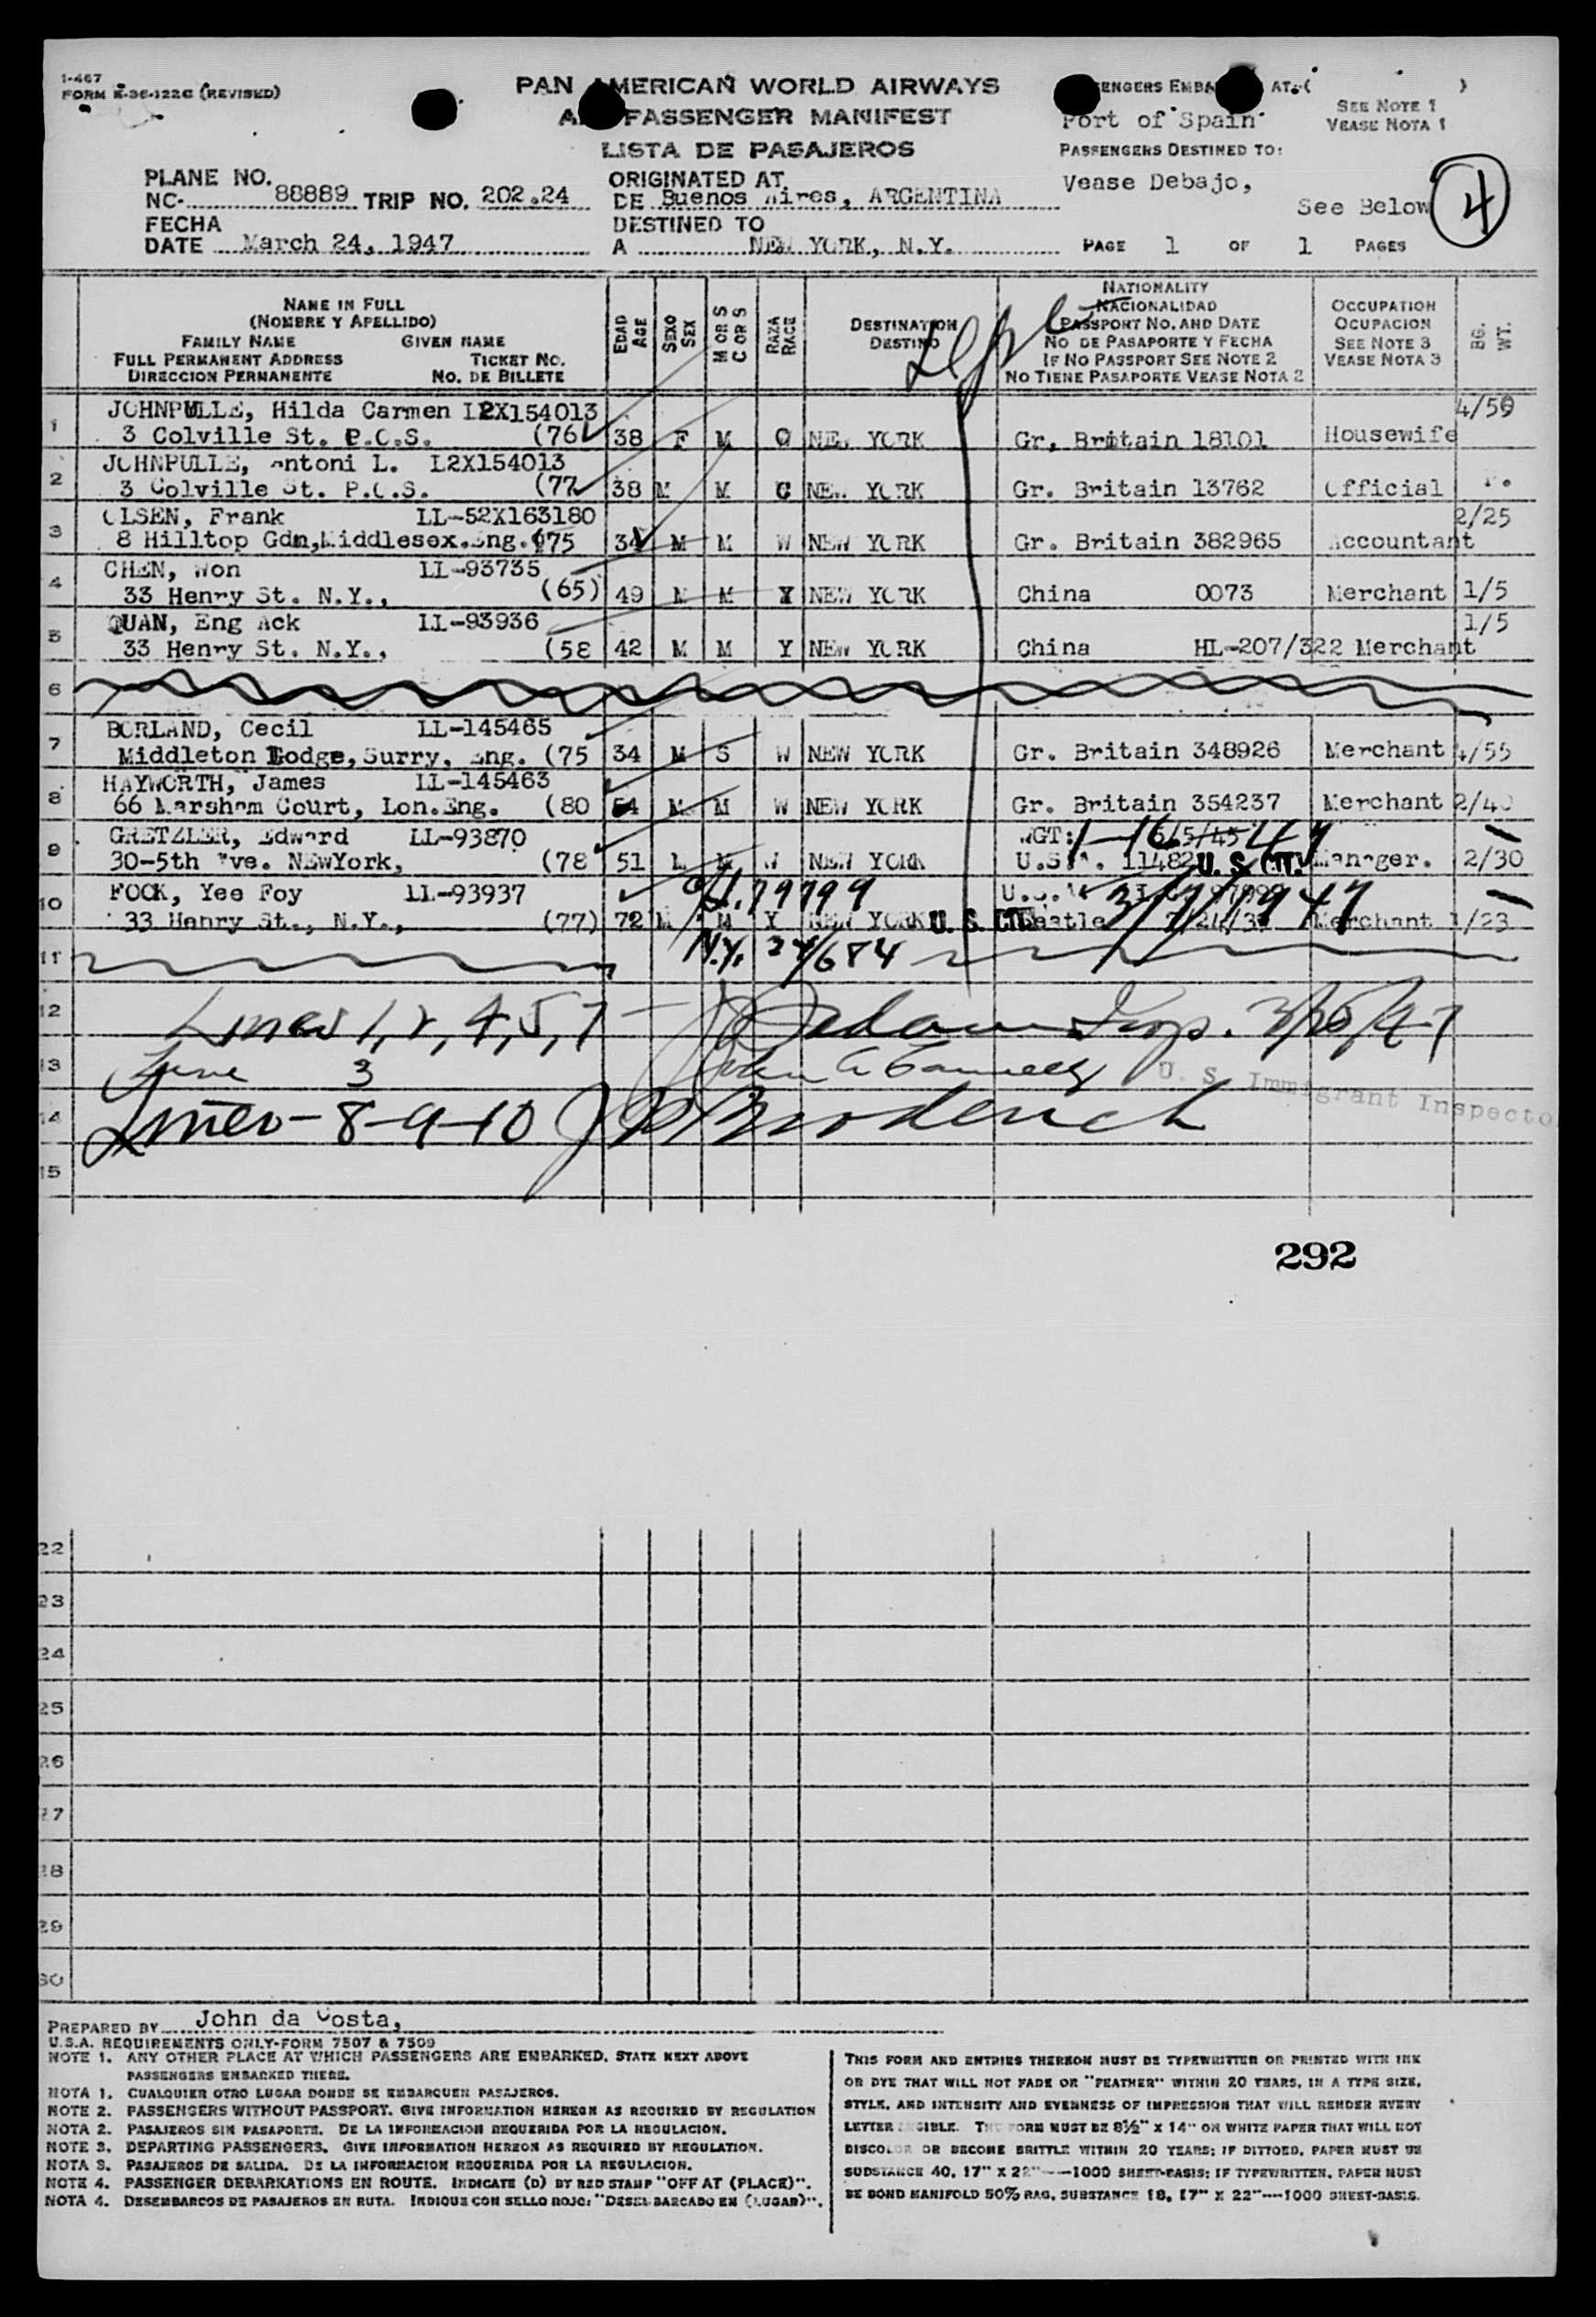 1-467
FORM K-36-122C (REVISED)
PAN AMERICAN WORLD AIRWAYS
PASSENGER MANIFEST
LISTA DE PASAJEROS
AT (                    )
Port of Spain
SEE NOTE 1
VEASE NOTA 1
PASSENGERS DESTINED TO:
Vease Debajo,
See Below
4
PLANE NO.
NC- 88889 TRIP NO. 202.24
FECHA
DATE March 24, 1947
ORIGINATED AT
DE Buenos Aires, ARGENTINA
DESTINED TO
A NEW YORK, N.Y.
PAGE 1 OF 1 PAGES
NAME IN FULL
(NOMBRE Y APELLIDO)
FAMILY NAME GIVEN NAME
FULL PERMANENT ADDRESS TICKET NO.
DIRECCION PERMANENTE NO. DE BILLETE
EDAD
AGE
SEXO
SEX
M OR S
C OR S
RAZA
RACE
DESTINATION
DESTINO
NATIONALITY
NACIONALIDAD
PASSPORT NO. AND DATE
NO DE PASAPORTE Y FECHA
IF NO PASSPORT SEE NOTE 2
NO TIENE PASAPORTE VEASE NOTA 2
OCCUPATION
OCUPACION
SEE NOTE 3
VEASE NOTA 3
BG.
WT.
1 JOHNPULLE, Hilda Carmen L2X154013 4/59
3 Colville St. P.O.S. (76 38 F M C NEW YORK Gr. Britain 18101 Housewife
2 JOHNPULLE, Antoni L. L2X154013
3 Colville St. P.O.S. (77 38 M M C NEW YORK Gr. Britain 13762 Official
3 OLSEN, Frank LL-52X163180 2/25
8 Hilltop Gdn,Middlesex.Eng.(75 34 M M W NEW YORK Gr. Britain 382965 Accountant
4 CHEN, Won LL-93735
33 Henry St. N.Y., (65) 49 M M Y NEW YORK China 0073 Merchant 1/5
5 QUAN, Eng Ack LL-93936 1/5
33 Henry St. N.Y., (58 42 M M Y NEW YORK China HL-207/322 Merchant
6
7 BORLAND, Cecil LL-145465
Middleton Lodge, Surry, Eng. (75 34 M S W NEW YORK Gr. Britain 348926 Merchant 4/55
8 HAYWORTH, James LL-145463
66 Marsham Court, Lon.Eng. (80 54 M M W NEW YORK Gr. Britain 354237 Merchant 2/40
9 GRETZLER, Edward LL-93870
30-5th Ave. NEwYork, (78 51 M M W NEW YORK U.S.A. 11482 U. S. CIT. Manager. 2/30
10 FOCK, Yee Foy LL-93937
33 Henry St., N.Y., (77) 72 M M Y NEW YORK U. S. CIT. Seattle Merchant 1/23
11 N.Y. 24/684
12 Lines 1, 2, 4, 5, 7 Insp. 3/25/47
13 Line 3 John
U. S. Immigrant Inspecto
14 Lines - 8-9-10
15
292
22
23
24
25
26
27
28
29
30
PREPARED BY John da Costa,
U.S.A. REQUIREMENTS ONLY-FORM 7507 & 7509
NOTE 1. ANY OTHER PLACE AT WHICH PASSENGERS ARE EMBARKED, STATE NEXT ABOVE
PASSENGERS EMBARKED THERE.
NOTA 1. CUALQUIER OTRO LUGAR DONDE SE EMBARQUEN PASAJEROS.
NOTE 2. PASSENGERS WITHOUT PASSPORT. GIVE INFORMATION HEREON AS REQUIRED BY REGULATION
NOTA 2. PASAJEROS SIN PASAPORTE. DE LA INFORMACION REQUERIDA POR LA REGULACION.
NOTE 3. DEPARTING PASSENGERS. GIVE INFORMATION HEREON AS REQUIRED BY REGULATION.
NOTA 3. PASAJEROS DE SALIDA. DE LA INFORMACION REQUERIDA POR LA REGULACION.
NOTE 4. PASSENGER DEBARKATIONS EN ROUTE. INDICATE (D) BY RED STAMP "OFF AT (PLACE)".
NOTA 4. DESEMBARCOS DE PASAJEROS EN RUTA. INDIQUE CON SELLO ROJO: "DESEMBARCADO EN (LUGAR)".
THIS FORM AND ENTRIES THEREON MUST BE TYPEWRITTEN OR PRINTED WITH INK
OR DYE THAT WILL NOT FADE OR "FEATHER" WITHIN 20 YEARS, IN A TYPE SIZE,
STYLE, AND INTENSITY AND EVENNESS OF IMPRESSION THAT WILL RENDER EVERY
LETTER LEGIBLE. THE FORM MUST BE 8½" X 14" ON WHITE PAPER THAT WILL NOT
DISCOLOR OR BECOME BRITTLE WITHIN 20 YEARS; IF DITTOED, PAPER MUST BE
SUBSTANCE 40, 17" X 22"----1000 SHEET-BASIS; IF TYPEWRITTEN, PAPER MUST
BE BOND MANIFOLD 50% RAG, SUBSTANCE 18, 17" X 22"----1000 SHEET-BASIS.